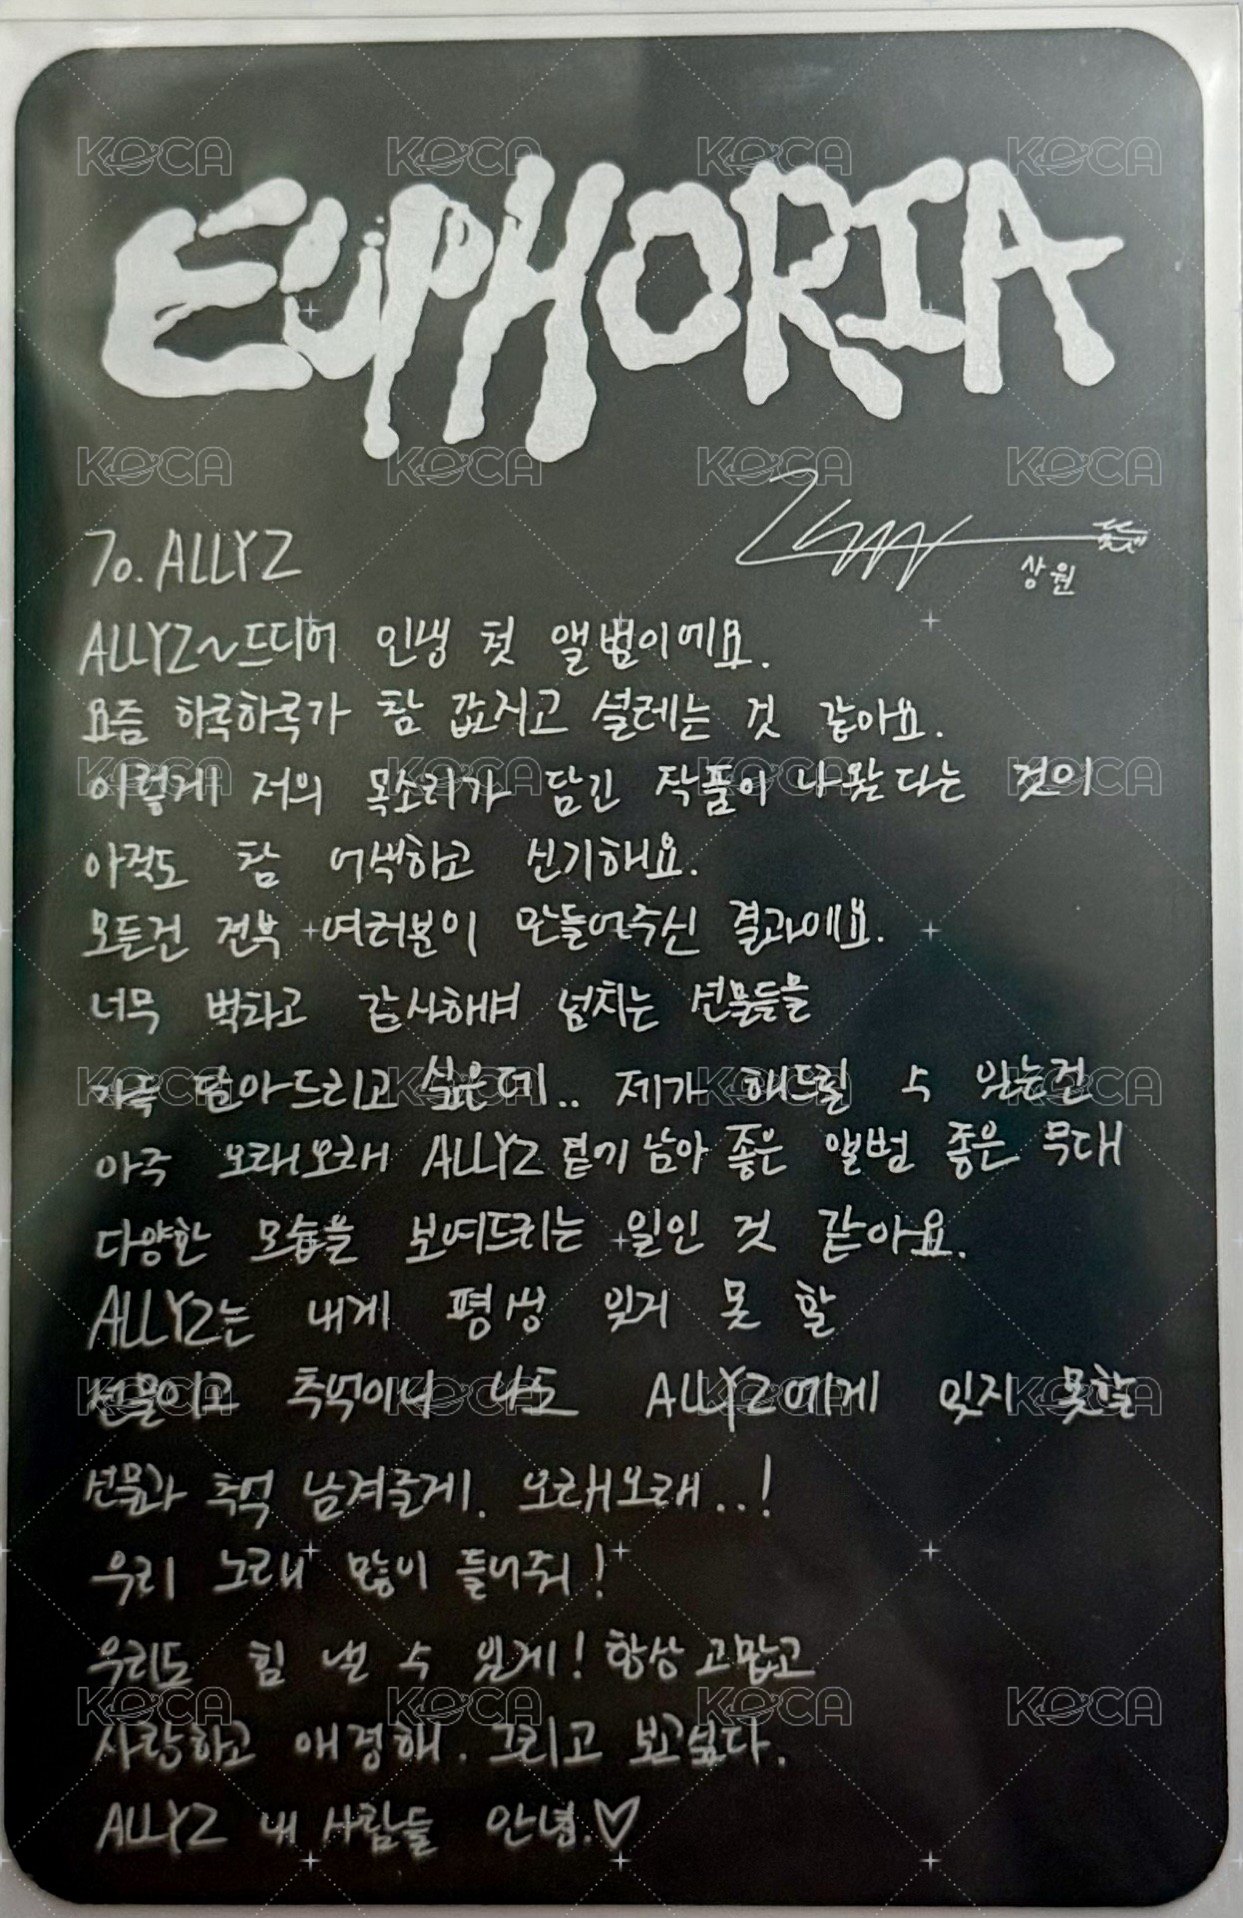 EUPHORIA
상원
To. ALLYZ
ALLYZ~드디어 인생 첫 앨범이에요.
요즘 하루하루가 참 값지고 설레는 것 같아요.
이렇게 저의 목소리가 담긴 작품이 나왔다는 것이
아직도 참 어색하고 신기해요.
모든건 전부 여러분이 만들어주신 결과에요.
너무 벅차고 감사해벼 넘치는 선물들을
가득 담아드리고 싶은데.. 제가 해드릴 수 있는건
아주 오래오래 ALLYZ 곁에 남아 좋은 앨범 좋은 무대
다양한 모습을 보여드리는 일인 것 같아요.
ALLYZ는 내게 평생 잊지 못 할
선물이고 추억이니 나도 ALLYZ에게 잊지 못할
선물과 추억 남겨줄게. 오래오래..!
우리 노래 많이 들어줘!
우리도 힘 낼 수 있게! 항상 고맙고
사랑하고 애정해. 그리고 보고싶다.
ALLYZ 내 사람들 안녕.♡
KOCA